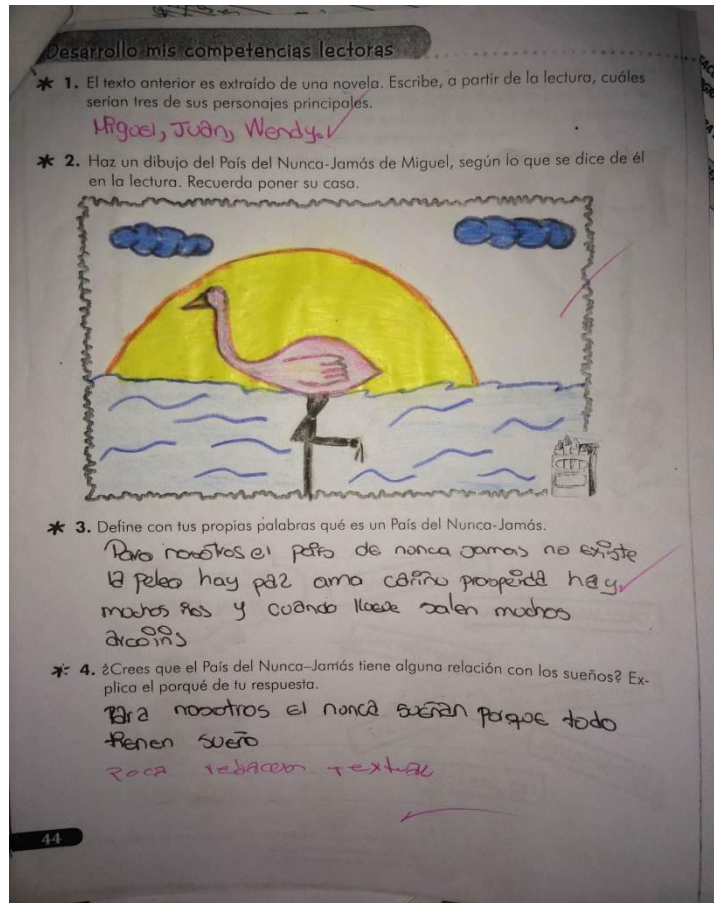 Desarrollo mis competencias lectoras
* 1. El texto anterior es extraído de una novela. Escribe, a partir de la lectura, cuáles
serían tres de sus personajes principales.
Miguel, Juan, Wendy.
* 2. Haz un dibujo del País del Nunca-Jamás de Miguel, según lo que se dice de él
en la lectura. Recuerda poner su casa.
* 3. Define con tus propias palabras qué es un País del Nunca-Jamás.
Para nosotros el de nonca Jamas no Existe
la pelea hay paz amo cariño hay
mochos rios y cuando llueve salen muchos
* 4. ¿Crees que el País del Nunca-Jamás tiene alguna relación con los sueños? Ex-
plica el porqué de tu respuesta.
Para nosotros El nonca sueñan porque todo
tienen sueño
Poca textual
44